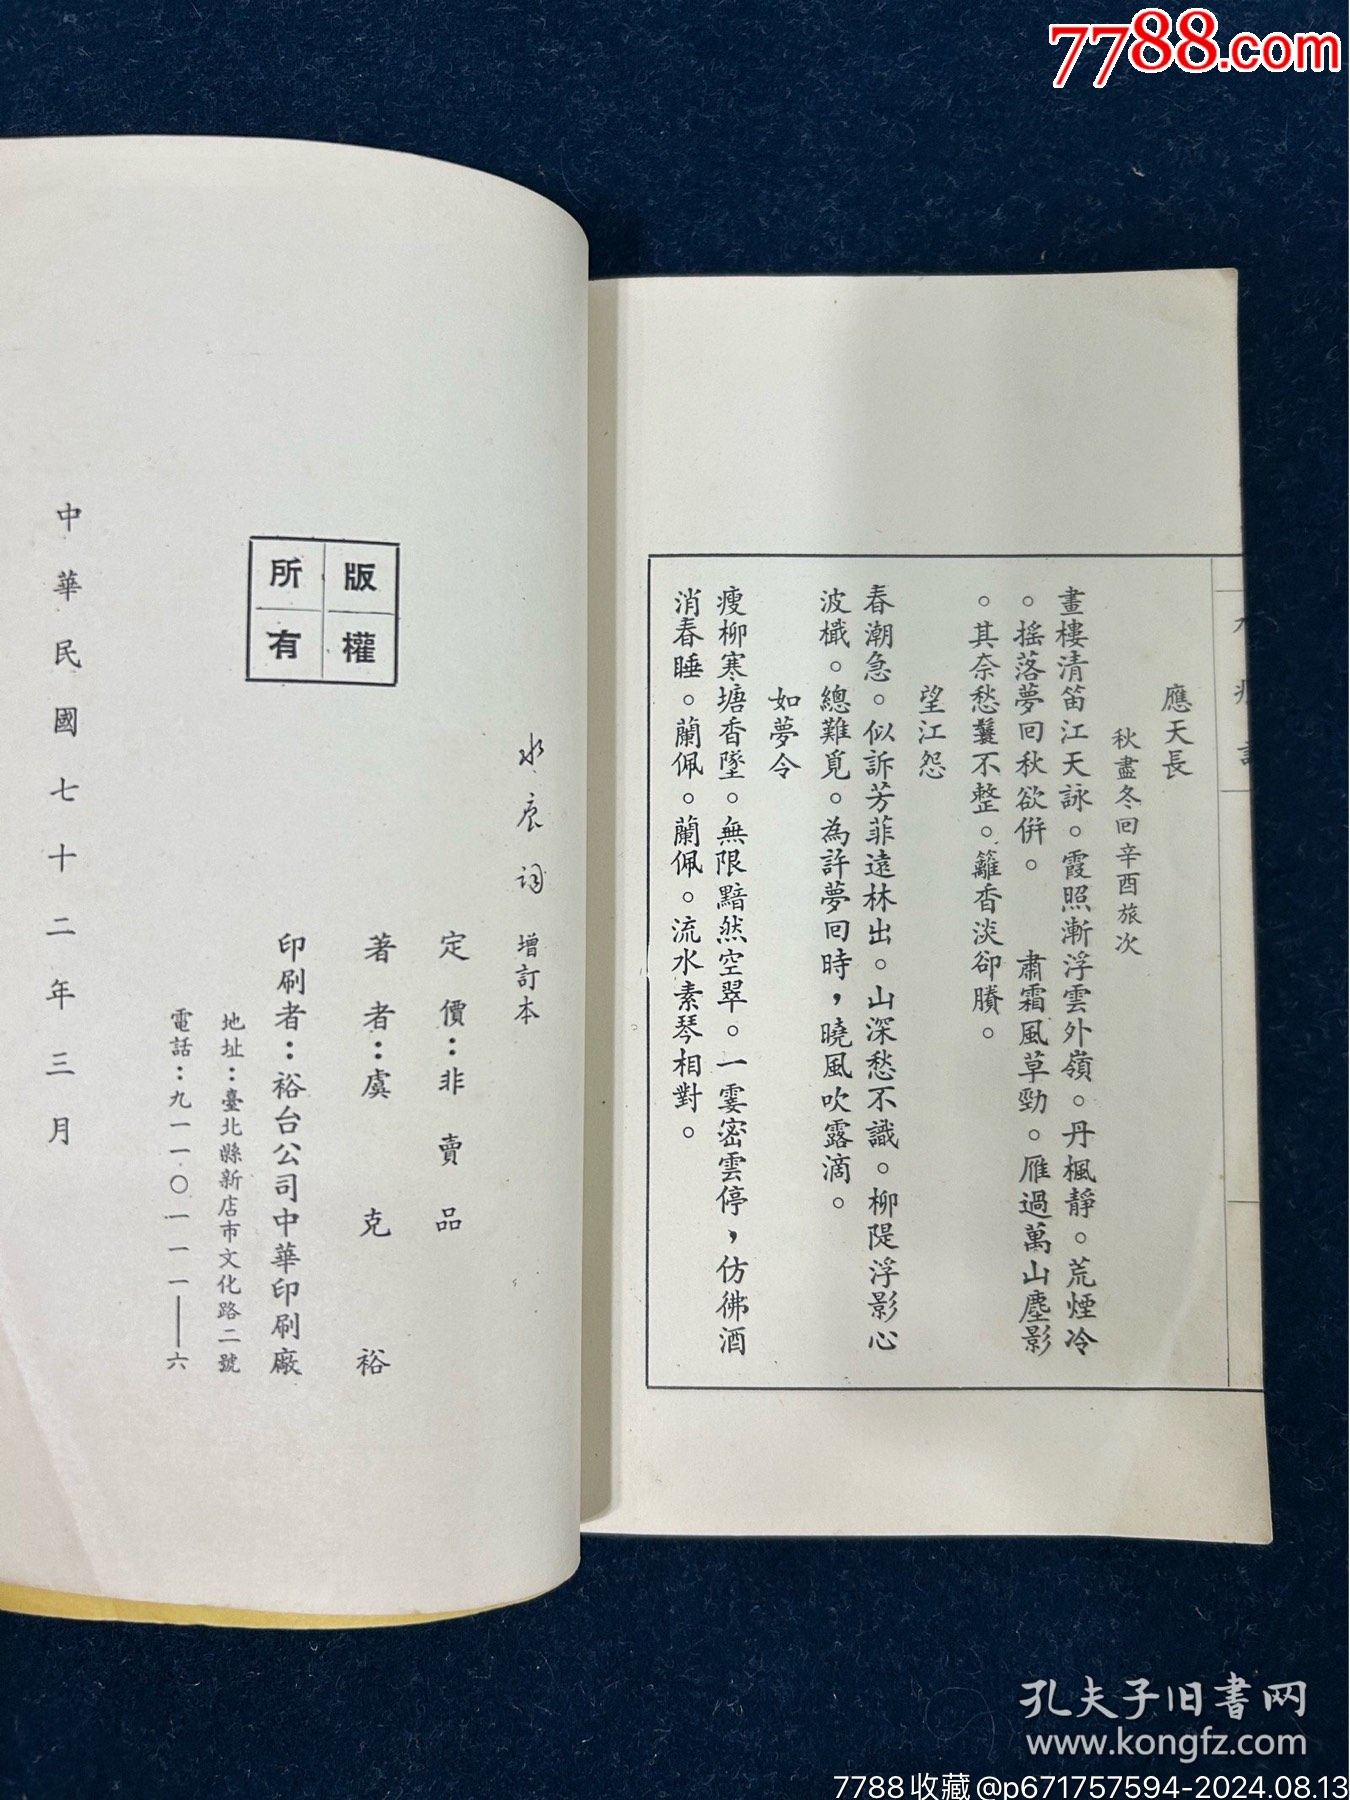 7788.com
應天長
秋盡冬回辛酉旅次
畫樓清笛江天詠。霞照漸浮雲外嶺。丹楓靜。荒煙冷
。搖落夢回秋欲併。　肅霜風草勁。雁過萬山塵影
。其奈愁鬟不整。籬香淡卻賸。
望江怨
春潮急。似訴芳菲遠林出。山深愁不識。柳隄浮影心
波檝。總難覓。為許夢回時，曉風吹露滴。
如夢令
瘦柳寒塘香墜。無限黯然空翠。一霎密雲停，仿彿酒
消春睡。蘭佩。蘭佩。流水素琴相對。
詞 增訂本
定價：非賣品
著者：虞克裕
印刷者：裕台公司中華印刷廠
地址：臺北縣新店市文化路二號
電話：九一一〇一一一——六
版權
所有
中華民國七十二年三月
孔夫子旧書网
www.kongfz.com
7788收藏@p671757594-2024.08.13